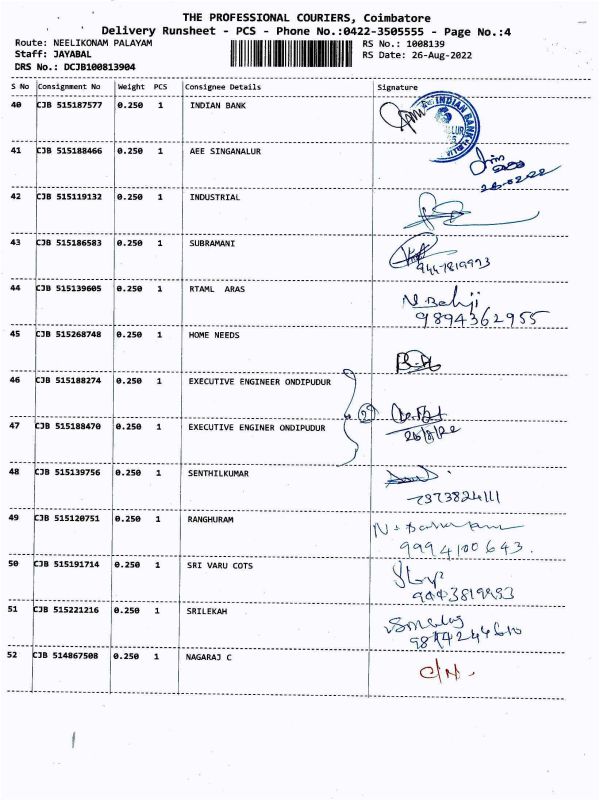 THE PROFESSIONAL COURIERS, Coimbatore
Delivery Runsheet - PCS - Phone No.:0422-3505555 - Page No.:4
Route: NEELIKONAM PALAYAM
RS No.: 1008139
Staff: JAYABAL
RS Date: 26-Aug-2022
DRS No.: DCJB100813904
S No Consignment No Weight PCS Consignee Details Signature
40 CJB 515187577 0.250 1 INDIAN BANK
INDIAN BANK
41 CJB 515188466 0.250 1 AEE SINGANALUR
42 CJB 515119132 0.250 1 INDUSTRIAL
43 CJB 515186583 0.250 1 SUBRAMANI
44 CJB 515139605 0.250 1 RTAML ARAS
9894362955
45 CJB 515268748 0.250 1 HOME NEEDS
46 CJB 515188274 0.250 1 EXECUTIVE ENGINEER ONDIPUDUR
2
47 CJB 515188470 0.250 1 EXECUTIVE ENGINER ONDIPUDUR
26/8/22
48 CJB 515139756 0.250 1 SENTHILKUMAR
7373824111
49 CJB 515120751 0.250 1 RANGHURAM
9994100643.
50 CJB 515191714 0.250 1 SRI VARU COTS
51 CJB 515221216 0.250 1 SRILEKAH
52 CJB 514867508 0.250 1 NAGARAJ C
C/N.